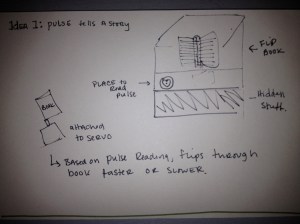 Idea 1: PULSE tells a story
FLIP
BOOK
PLACE to
Read
pulse
Hidden
Stuff.
BOOK
attaching
to SERVO
Based on Pulse Reading, flips through
book faster or slower.